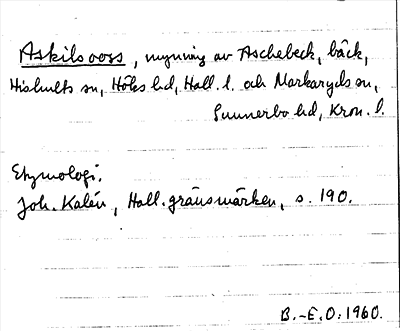 Askilsooss, mynning av Aschebeck, bäck,
Hishults sn, Höks hd, Hall. l. och Markaryds sn,
Sunnerbo hd, Kron. l.
Etymologi.
Joh. Kalén, Hall. gränsmärken, s. 190.
B.-E. O. 1960.